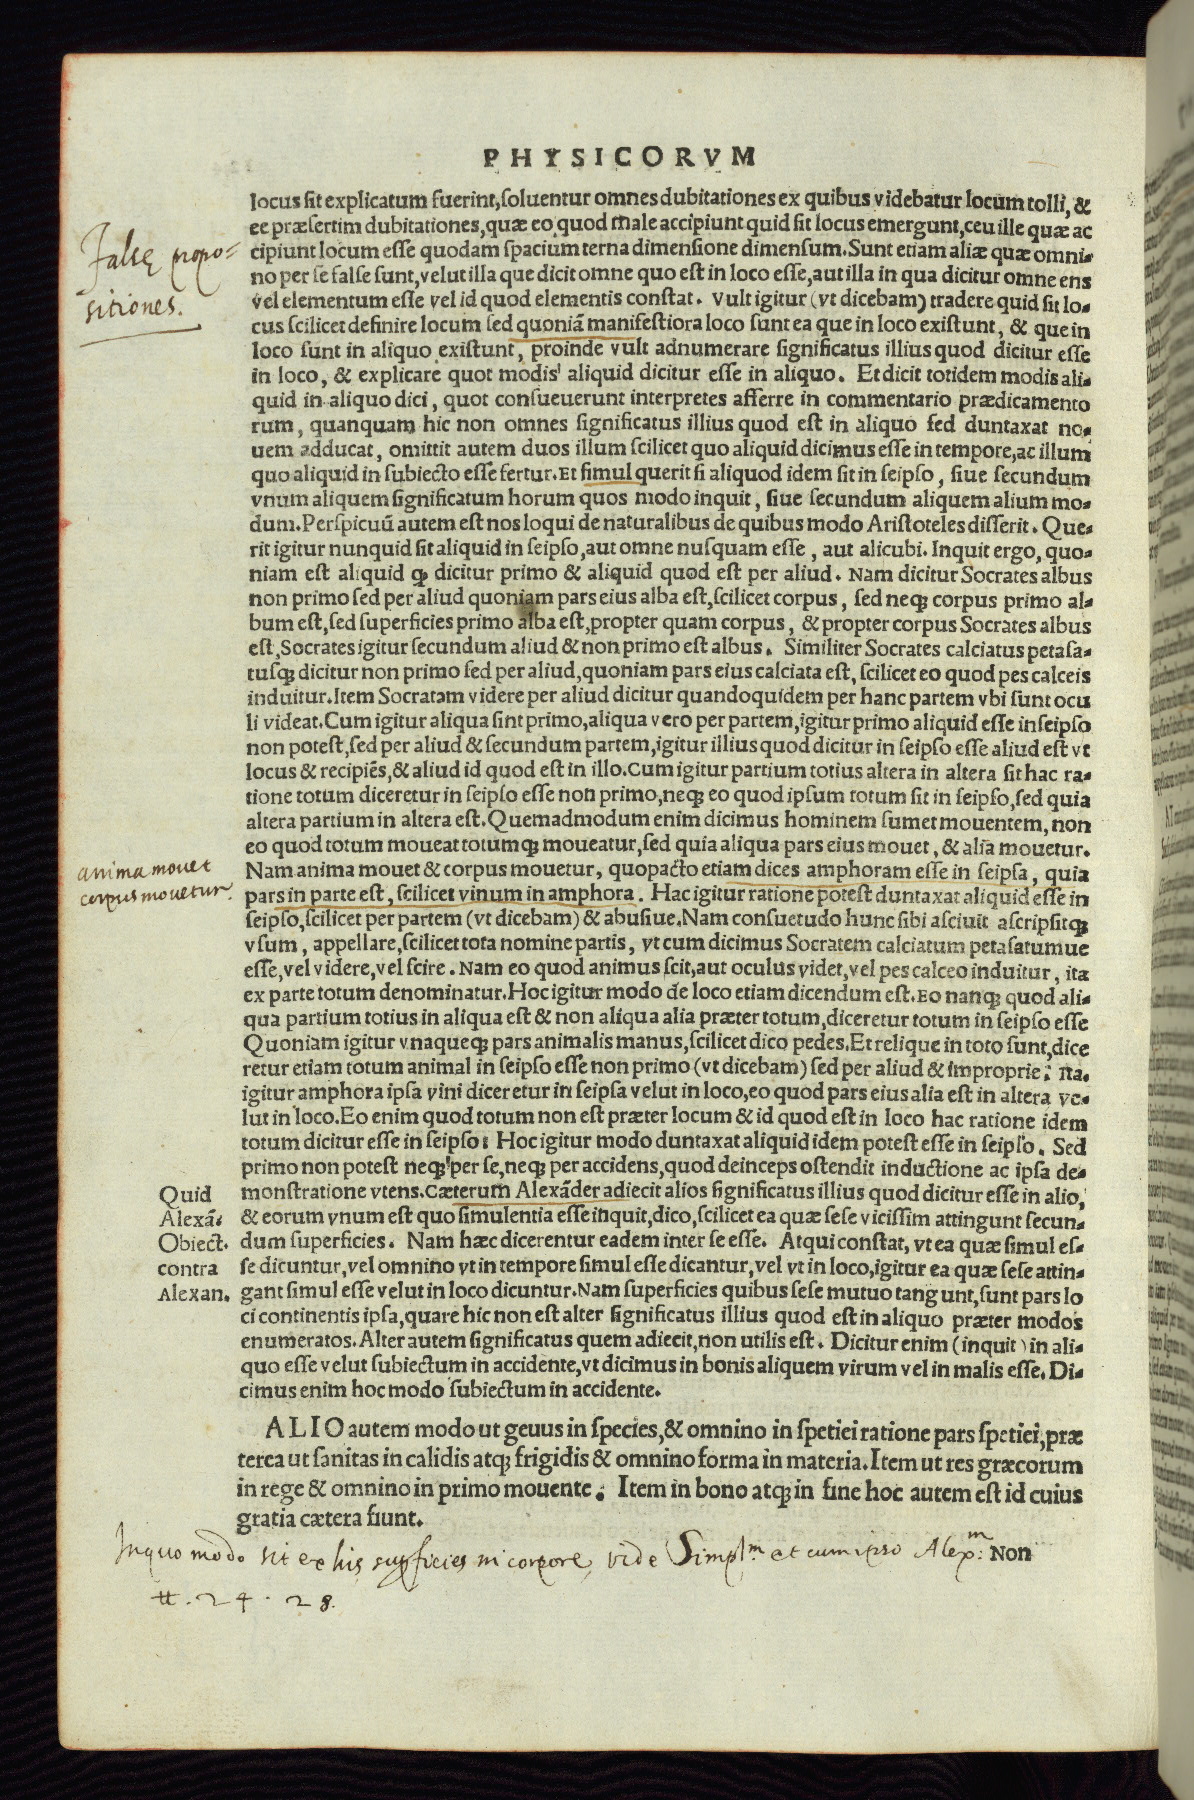 PHYSICORVM
locus sit explicatum fuerint, soluentur omnes dubitationes ex quibus videbatur locum tolli, &
ee præsertim dubitationes, quæ eo quod male accipiunt quid sit locus emergunt, ceu ille quæ ac
Falsę propo=
sitiones.
cipiunt locum esse quodam spacium terna dimensione dimensum. Sunt etiam aliæ quæ omni-
no per se false sunt, velut illa que dicit omne quo est in loco esse, aut illa in qua dicitur omne ens
vel elementum esse vel id quod elementis constat. Vult igitur (vt dicebam) tradere quid sit lo-
cus scilicet definire locum sed quoniã manifestiora loco sunt ea que in loco existunt, & que in
loco sunt in aliquo existunt, proinde vult adnumerare significatus illius quod dicitur esse
in loco, & explicare quot modis aliquid dicitur esse in aliquo. Et dicit totidem modis ali-
quid in aliquo dici, quot consueuerunt interpretes afferre in commentario prædicamento
rum, quanquam hic non omnes significatus illius quod est in aliquo sed duntaxat no-
uem adducat, omittit autem duos illum scilicet quo aliquid dicimus esse in tempore, ac illum
quo aliquid in subiecto esse fertur. Et simul querit si aliquod idem sit in seipso, siue secundum
vnum aliquem significatum horum quos modo inquit, siue secundum aliquem alium mo-
dum. Perspicuũ autem est nos loqui de naturalibus de quibus modo Aristoteles disserit. Que-
rit igitur nunquid sit aliquid in seipso, aut omne nusquam esse, aut alicubi. Inquit ergo, quo-
niam est aliquid ꝙ dicitur primo & aliquid quod est per aliud. Nam dicitur Socrates albus
non primo sed per aliud quoniam pars eius alba est, scilicet corpus, sed neqꝫ corpus primo al-
bum est, sed superficies primo alba est, propter quam corpus, & propter corpus Socrates albus
est, Socrates igitur secundum aliud & non primo est albus. Similiter Socrates calciatus petasa-
tusqꝫ dicitur non primo sed per aliud, quoniam pars eius calciata est, scilicet eo quod pes calceis
induitur. Item Socratam videre per aliud dicitur quandoquidem per hanc partem vbi sunt ocu
li videat. Cum igitur aliqua sint primo, aliqua vero per partem, igitur primo aliquid esse in seipso
non potest, sed per aliud & secundum partem, igitur illius quod dicitur in seipso esse aliud est vt
locus & recipiẽs, & aliud id quod est in illo. Cum igitur partium totius altera in altera sit hac ra-
tione totum diceretur in seipso esse non primo, neqꝫ eo quod ipsum totum sit in seipso, sed quia
altera partium in altera est. Quemadmodum enim dicimus hominem sumet mouentem, non
eo quod totum moueat totumqꝫ moueatur, sed quia aliqua pars eius mouet, & alia mouetur.
anima mouet
corpus mouetur.
Nam anima mouet & corpus mouetur, quopacto etiam dices amphoram esse in seipsa, quia
pars in parte est, scilicet vinum in amphora. Hac igitur ratione potest duntaxat aliquid esse in
seipso, scilicet per partem (vt dicebam) & abusiue. Nam consuetudo hunc sibi asciuit ascripsitqꝫ
vsum, appellare, scilicet tota nomine partis, vt cum dicimus Socratem calciatum petasatumue
esse, vel videre, vel scire. Nam eo quod animus scit, aut oculus videt, vel pes calceo induitur, ita
ex parte totum denominatur. Hoc igitur modo de loco etiam dicendum est. Eo nanqꝫ quod ali-
qua partium totius in aliqua est & non aliqua alia præter totum, diceretur totum in seipso esse
Quoniam igitur vnaqueqꝫ pars animalis manus, scilicet dico pedes. Et relique in toto sunt, dice
retur etiam totum animal in seipso esse non primo (vt dicebam) sed per aliud & improprie: ita.
igitur amphora ipsa vini diceretur in seipsa velut in loco, eo quod pars eius alia est in altera ve-
lut in loco. Eo enim quod totum non est præter locum & id quod est in loco hac ratione idem
totum dicitur esse in seipso: Hoc igitur modo duntaxat aliquid idem potest esse in seipso. Sed
primo non potest neqꝫ per se, neqꝫ per accidens, quod deinceps ostendit inductione ac ipsa de-
Quid
Alexã:
Obiect.
contra
Alexan.
monstratione vtens. Cæterum Alexãder adiecit alios significatus illius quod dicitur esse in alio,
& eorum vnum est quo simulentia esse inquit, dico, scilicet ea quæ sese vicissim attingunt secun-
dum superficies. Nam hæc dicerentur eadem inter se esse. Atqui constat, vt ea quæ simul es-
se dicuntur, vel omnino vt in tempore simul esse dicantur, vel vt in loco, igitur ea quæ sese attin-
gant simul esse velut in loco dicuntur. Nam superficies quibus sese mutuo tangunt, sunt pars lo
ci continentis ipsa, quare hic non est alter significatus illius quod est in aliquo præter modos
enumeratos. Alter autem significatus quem adiecit, non utilis est. Dicitur enim (inquit) in ali-
quo esse velut subiectum in accidente, vt dicimus in bonis aliquem virum vel in malis esse. Di-
cimus enim hoc modo subiectum in accidente.
ALIO autem modo ut geuus in species, & omnino in spetiei ratione pars spetiei, præ
terea ut sanitas in calidis atqꝫ frigidis & omnino forma in materia. Item ut res græcorum
in rege & omnino in primo mouente. Item in bono atqꝫ in fine hoc autem est id cuius
gratia cætera fiunt.
In quo modo sit ex his superficies in corpore, vide Simpl.m et cum ipso Alex.m
Non
tt. 24. 28.